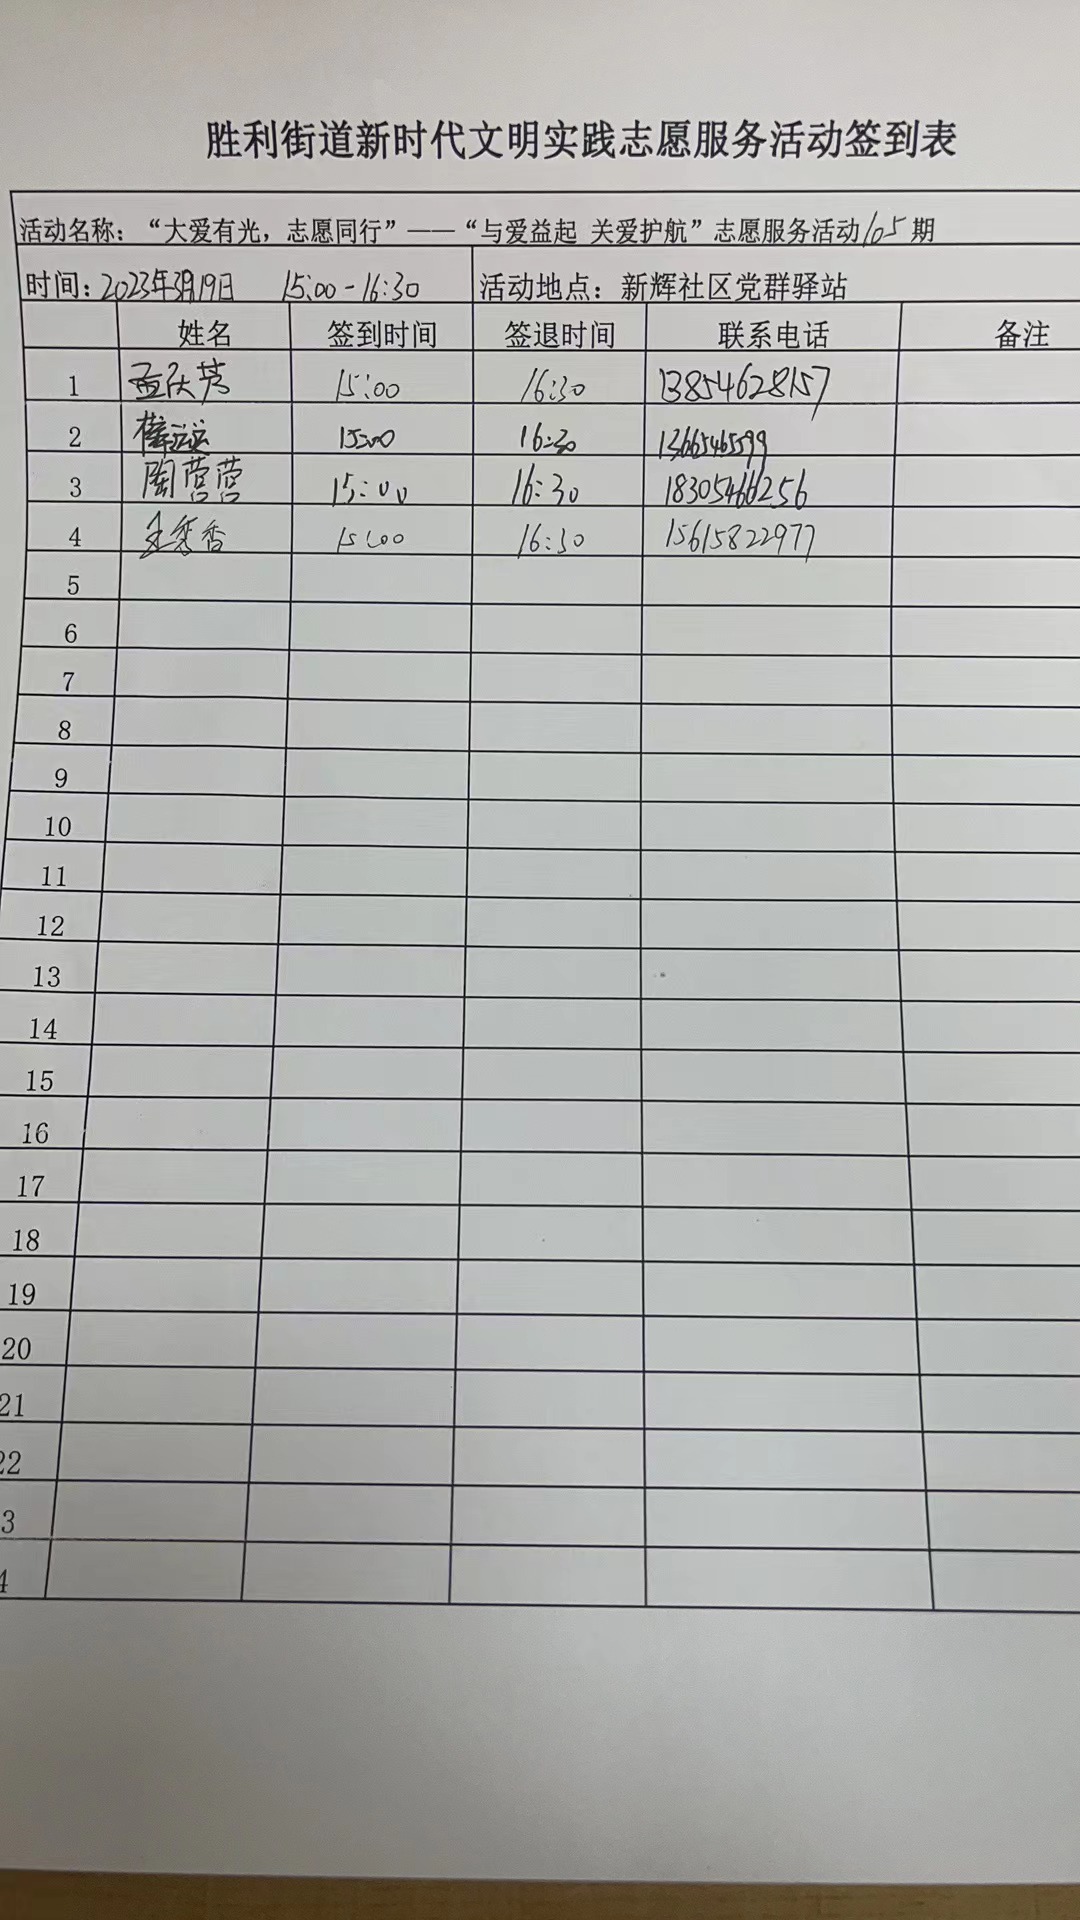 胜利街道新时代文明实践志愿服务活动签到表
活动名称：“大爱有光，志愿同行”——“与爱益起 关爱护航”志愿服务活动105期
时间：2023年3月19日 15:00-16:30 活动地点：新辉社区党群驿站
姓名 签到时间 签退时间 联系电话 备注
1 孟庆芳 15:00 16:30 13854628157
2 15:00 16:30 13665465599
3 陶营营 15:00 16:30 18305466256
4 王秀香 15:00 16:30 15615822977
5
6
7
8
9
10
11
12
13
14
15
16
17
18
19
20
21
22
3
4